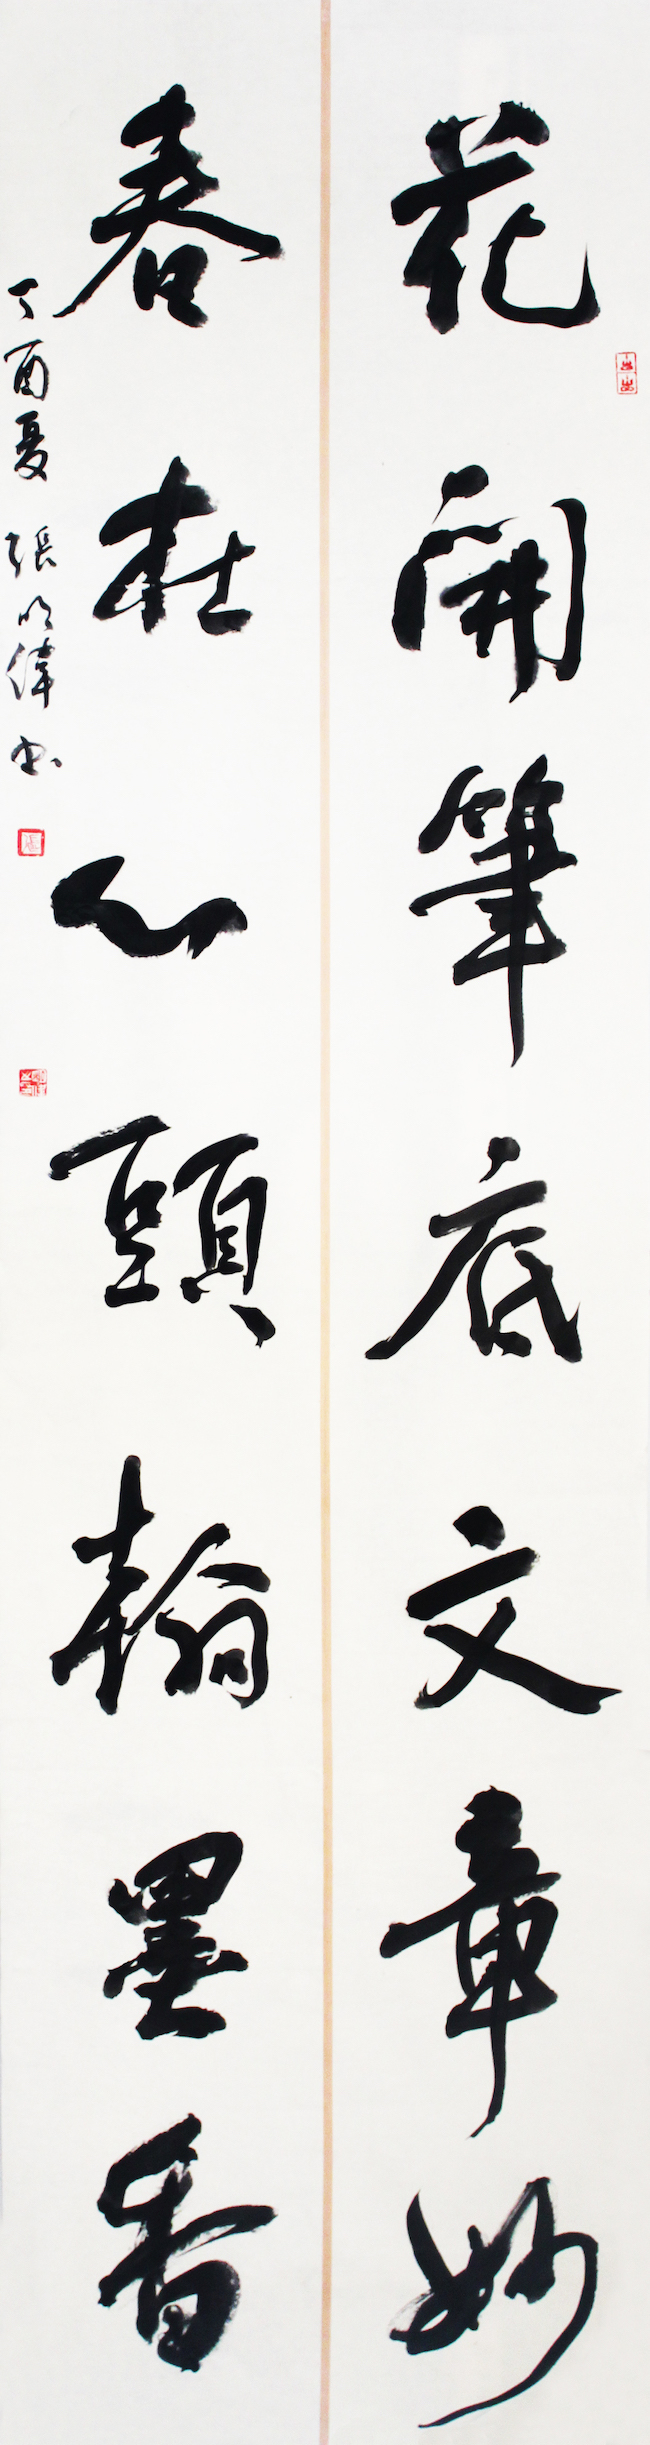 花開筆底文章妙
春在心頭翰墨香
丁酉夏 張明偉書